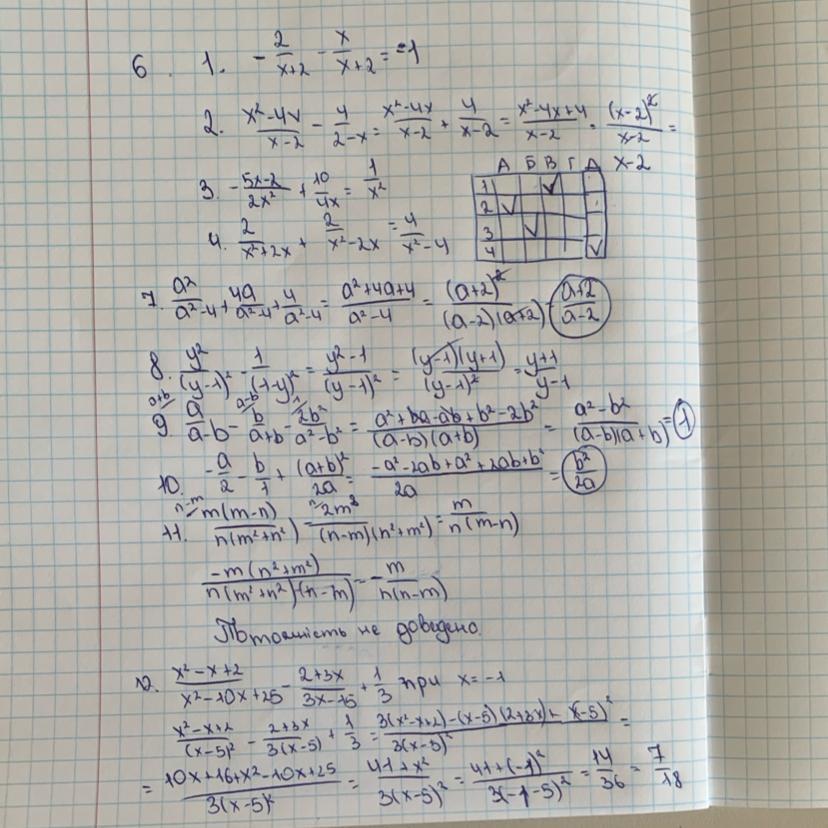 6. 1. -2/(x+2) - x/(x+2) = -1
2. (x²-4x)/(x-2) - 4/(2-x) = (x²-4x)/(x-2) + 4/(x-2) = (x²-4x+4)/(x-2) = (x-2)²/(x-2) =
x-2
А Б В Г Д
1 ✓
2 ✓
3 ✓
4 ✓
3. -(5x-2)/(2x²) + 10/(4x) = 1/x²
4. 2/(x²+2x) + 2/(x²-2x) = 4/(x²-4)
7. a²/(a²-4) + 4a/(a²-4) + 4/(a²-4) = (a²+4a+4)/(a²-4) = (a+2)²/((a-2)(a+2)) = (a+2)/(a-2)
8. y²/(y-1)² - 1/(1-y)² = (y²-1)/(y-1)² = ((y-1)(y+1))/(y-1)² = (y+1)/(y-1)
9. a/(a-b) - b/(a+b) - 2b²/(a²-b²) = (a²+ba-ab+b²-2b²)/((a-b)(a+b)) = (a²-b²)/((a-b)(a+b)) = 1
10. -a/2 - b/1 + (a+b)²/2a = (-a²-2ab+a²+2ab+b²)/2a = b²/2a
11. m(m-n)/(n(m²+n²)) - 2m²/((n-m)(n²+m²)) = m/(n(m-n))
-m(n²+m²)/(n(m²+n²)(n-m)) = -m/(n(n-m))
Тотожність не доведено.
12. (x²-x+2)/(x²-10x+25) - (2+3x)/(3x-15) + 1/3 при x=-1
(x²-x+2)/(x-5)² - (2+3x)/(3(x-5)) + 1/3 = (3(x²-x+2)-(x-5)(2+3x)+(x-5)²)/(3(x-5)²) =
= (10x+16+x²-10x+25)/(3(x-5)²) = (41+x²)/(3(x-5)²) = (41+(-1)²)/(3(-1-5)²) = 14/36 = 7/18